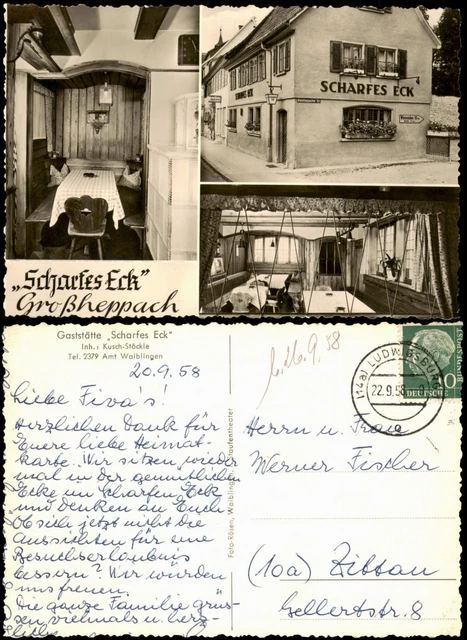 STRAUSS ECK
SCHARFES ECK
„Scharfes Eck"
Großheppach
Gaststätte „Scharfes Eck"
Inh.: Kusch-Stöckle
Tel. 2379 Amt Waiblingen
20.9.58
Liebe Fiva's!
Herzlichen Dank für
Euere liebe Heimat-
karte. Wir sitzen wieder
mal in der gemütlichen
Ecke im Scharfen Eck
und denken an Euch
Ob sich jetzt nicht die
Aussichten für eine
Besuchserlaubnis
bessern? Wir würden
uns freuen.
Die ganze Familie grüs-
sen vielmals u. herz-
liche
Foto-Rösen, Waiblingen, Staufentheater
26.9.58
(14a) LUDWIGSBURG
22.9.58
DEUTSCHE
Herrn u. Frau
Werner Fischer
(10a) Zittau
Gellertstr. 8